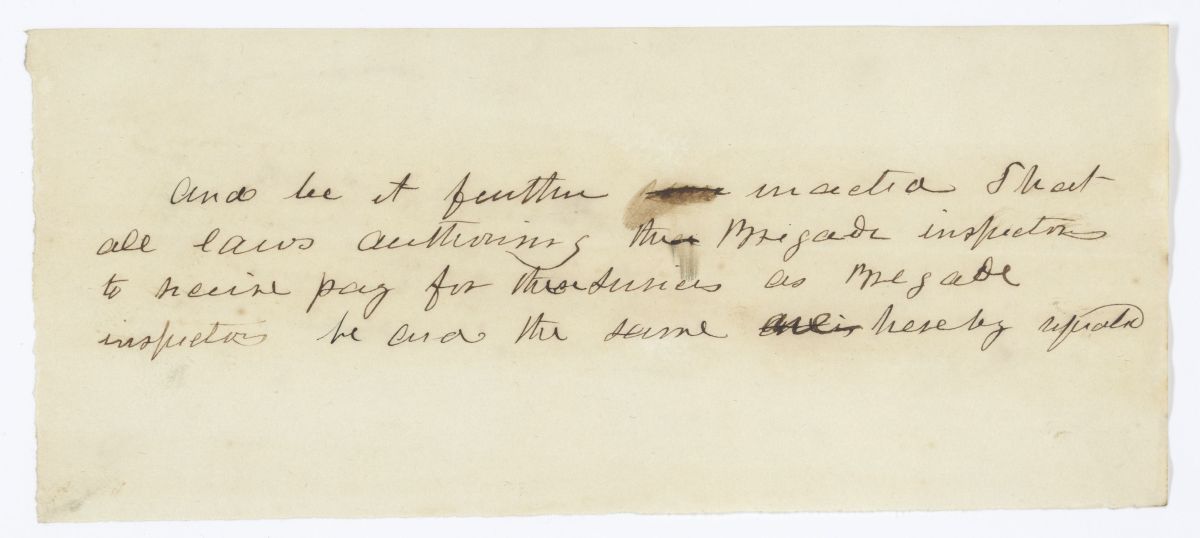 and be it further enacted That
all laws authorising the Brigade inspectors
to receive pay for their services as Bregade
inspectors be and the same is hereby repealed